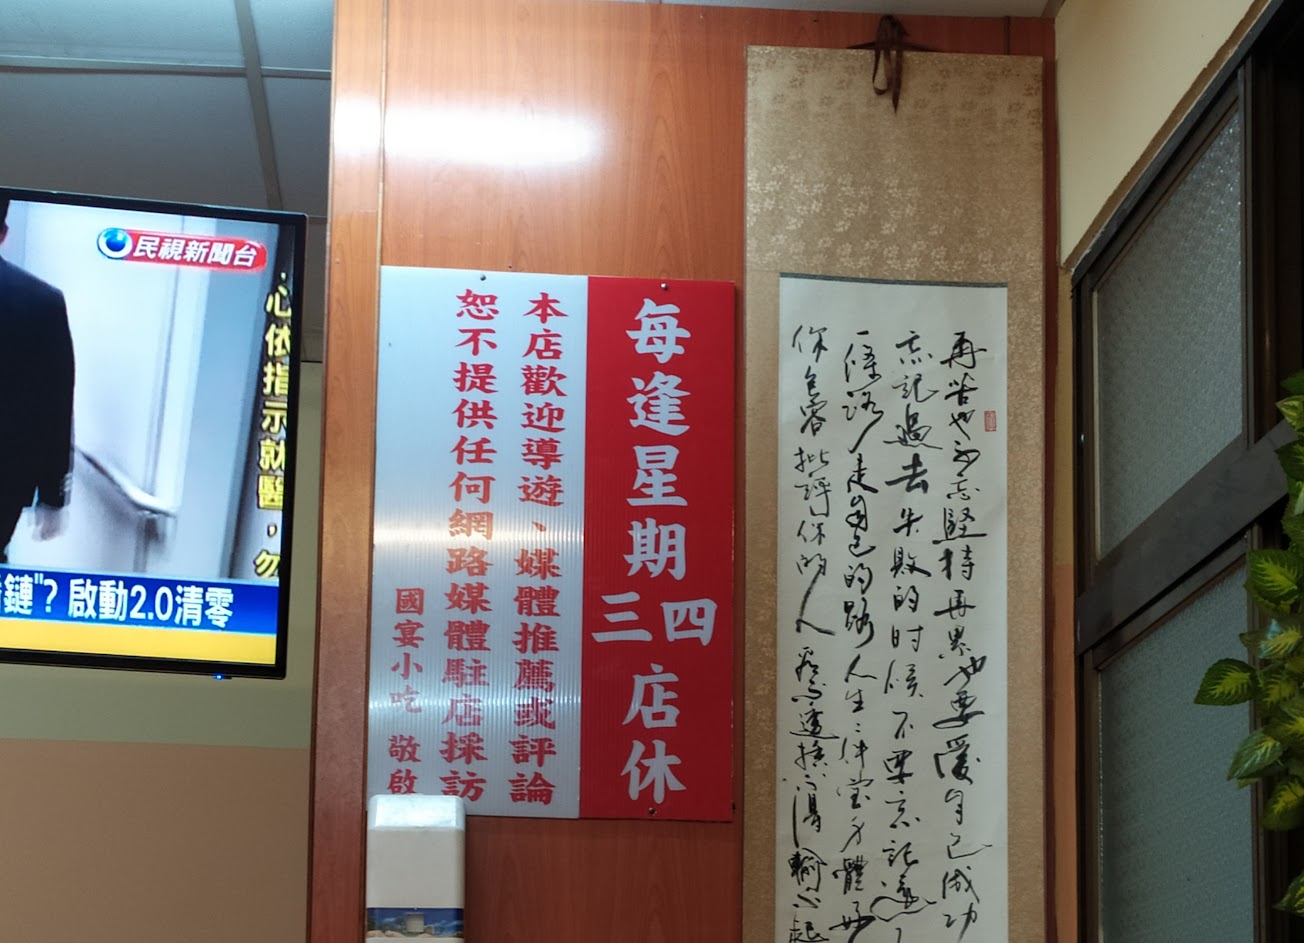 民視新聞台
心依指示就醫，勿
鏈"？啟動2.0清零
每逢星期三四店休
本店歡迎導遊、媒體推薦或評論
恕不提供任何網路媒體駐店採訪
國宴小吃 敬啟
再苦也不忘堅持再累也要愛自己成功
忘記過去失敗的時候不要忘記還
一條路走自己的路人生二件宝身體好
你包容批評你的人